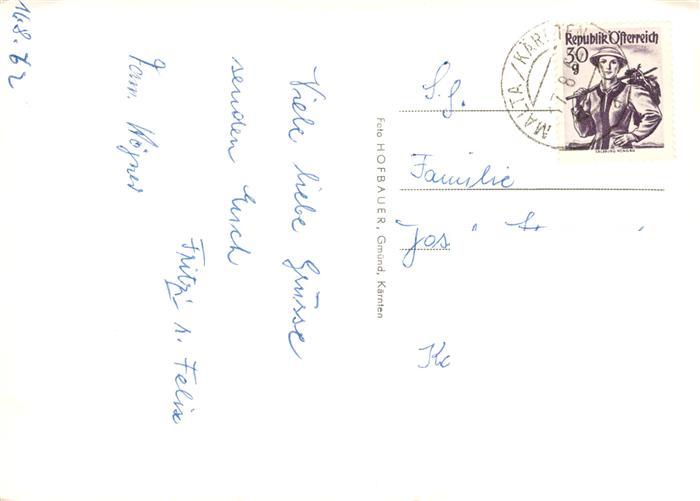 16.8.62
Viele liebe Grüsse
senden Euch
Fritzi u. Felix
Fam.
Foto HOFBAUER, Gmünd, Kärnten
S.g.
Familie
Jos
MALTA / KÄRNTEN
Republik Österreich
30
g